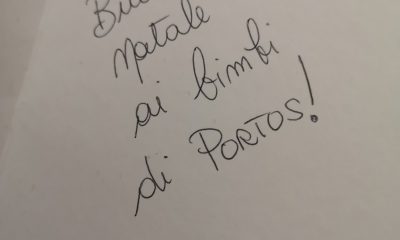 Natale
ai bimbi
di PORTOS!